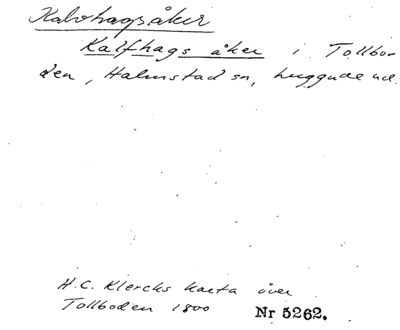 Kalvhagsåker
Kalfhags åker i Tollbo-
den, Halmstad sn, Luggude hd.
H.C. Klercks karta över
Tollboden 1800 Nr 5262.